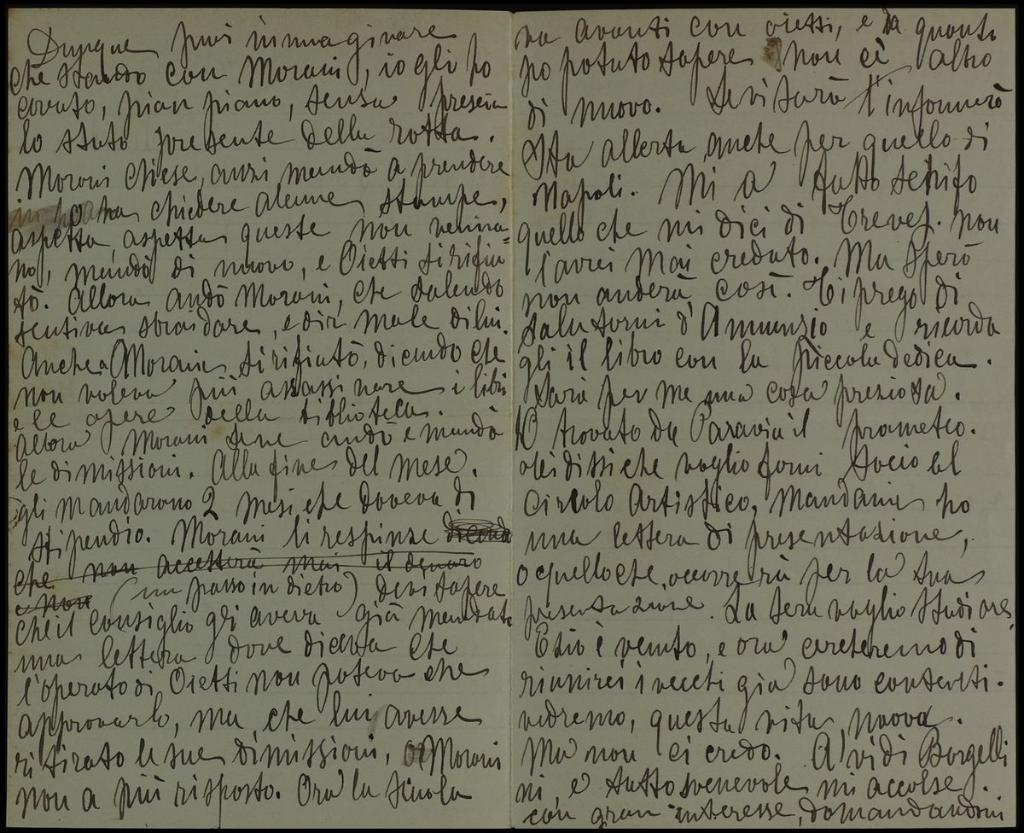 Dunque puoi immaginare
che stando con Morani, io gli ho
cavato, pian piano, senza prescia
lo stato presente della rotta.
Morani chiese, anzi, mandò a prendere
chiedere alcune stampe,
aspetta, aspetta queste non veniva=
no, mandò di nuovo, e Oietti si rifiu
tò. Allora andò Morani, che salendo
sentiva sbraidare, e dir male di lui.
Anche Morani si rifiutò, dicendo che
non voleva più assassinare i libri
e le opere della biblioteca.
Allora Morani se ne andò e mandò
le dimissioni. Alla fine del mese,
gli mandarono 2 mesi che doveva di
stipendio. Morani li respinse
che non accetterà mai il denaro
e non (un passo indietro) devi sapere
che il consiglio gli aveva già mandato
una lettera dove diceva che
l'operato di Oietti non poteva che
approvarlo, ma che lui avesse
ritirato le sue dimissioni, Morani
non a più risposto. Ora la scuola
va avanti con oietti, e da quanto
ho potuto sapere non c'è altro
di nuovo. Se vi sarà t'informerò
Sta allerta anche per quello di
Napoli. Mi a fatto schifo
quello che mi dici di Treves. non
l'avrei mai creduto. Ma spero
non anderà così. Ti prego di
salutarmi d'Annunzio e ricorda
gli il libro con la piccola dedica.
Sarà per me una cosa preziosa.
O trovato da Paravia il prometeo.
voglio farmi socio al
Circolo Artistico, Mandami
una lettera di presentazione,
o quello che occorrerà per la tua
presentazione. La sera voglio studiare
Ezio è venuto, e ora cercheremo di
riunirci i vecchi già sono contenti.
vedremo, questa vita nuova.
Ma non ci credo. A vidi Borgelli
ni, e tutto svenevole mi accolse
con gran interesse, domandandomi